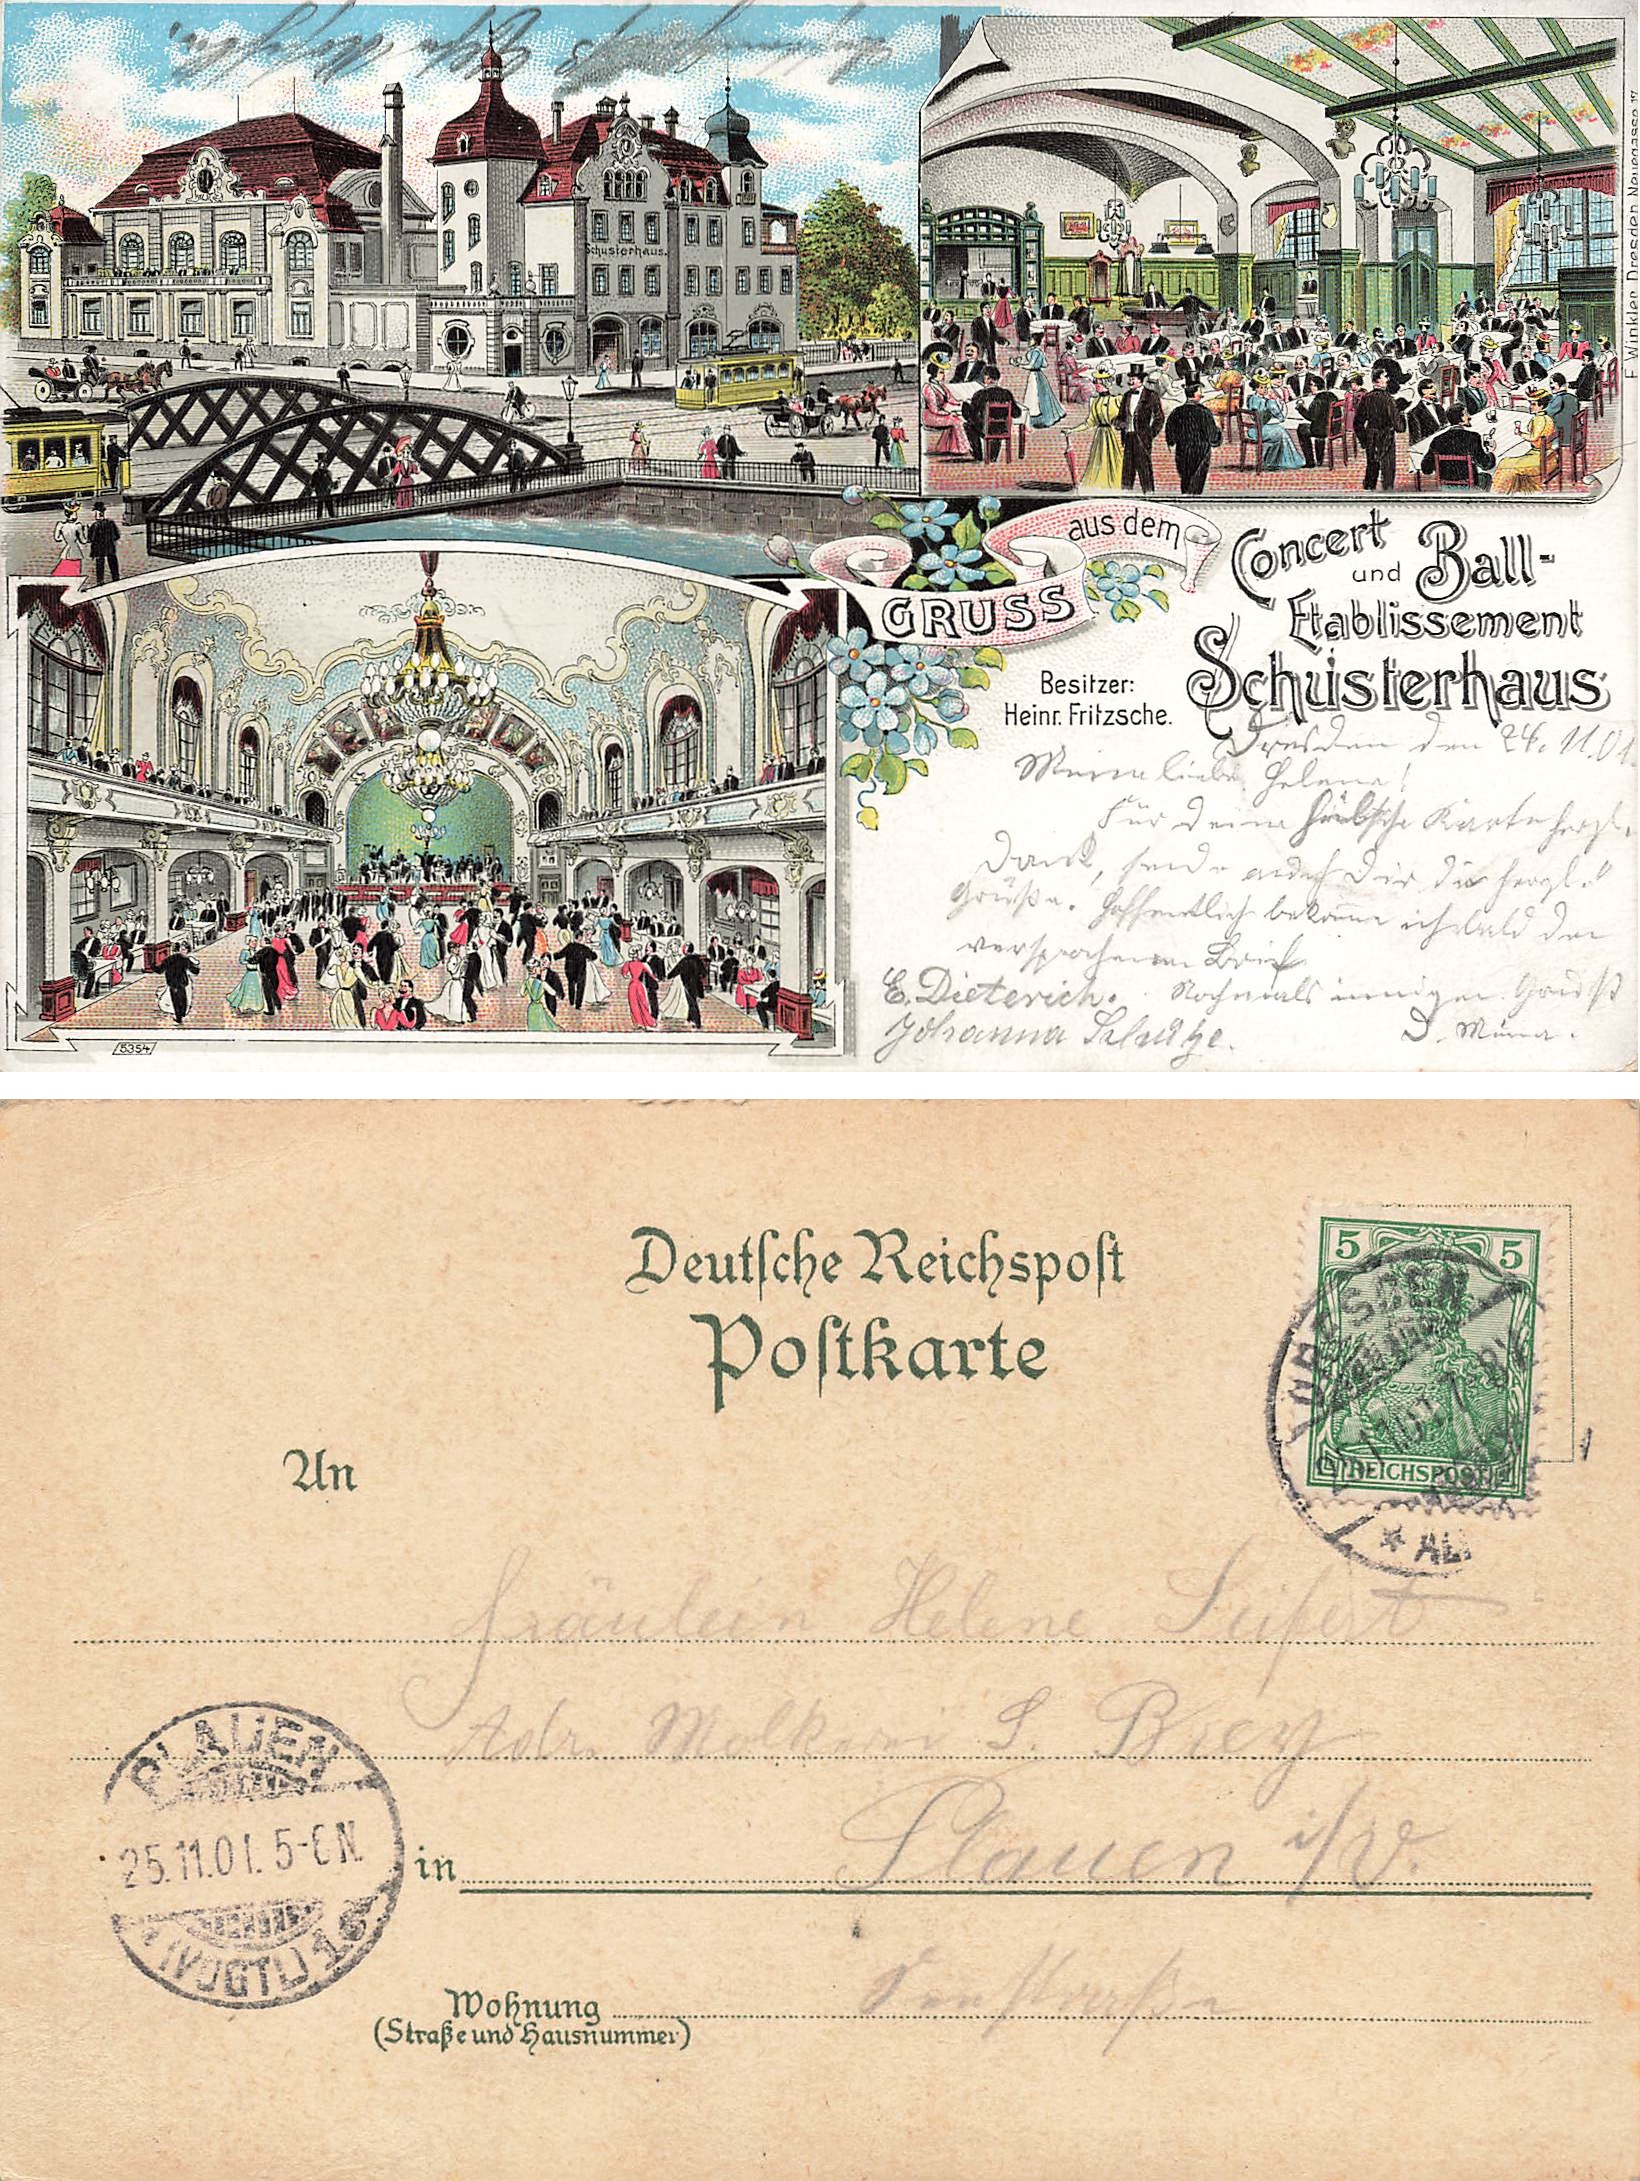 Schusterhaus.
F. Winkler, Dresden, Neuegasse 17
GRUSS aus dem
Concert
und Ball-
Etablissement
Schusterhaus
Besitzer:
Heinr. Fritzsche.
Dresden den 24.11.01.
Meine liebe Helene!
Für Deine hübsche Karte herzl.
Dank, sende auch Dir die herzl.
Grüße. Hoffentlich bekomme ich bald den
versprochenen Brief
E. Dieterich. Nochmals innigen Gruß
Johanna Schulze. D.
5354
Deutsche Reichspost
Postkarte
5 5
REICHSPOST
DRESDEN
* AL
An
Fräulein Helene Seifert
Adr.
PLAUEN
25.11.01. 5-6 N.
* (VOGTL) 1 c
in Plauen i/V.
Wohnung
(Straße und Hausnummer)